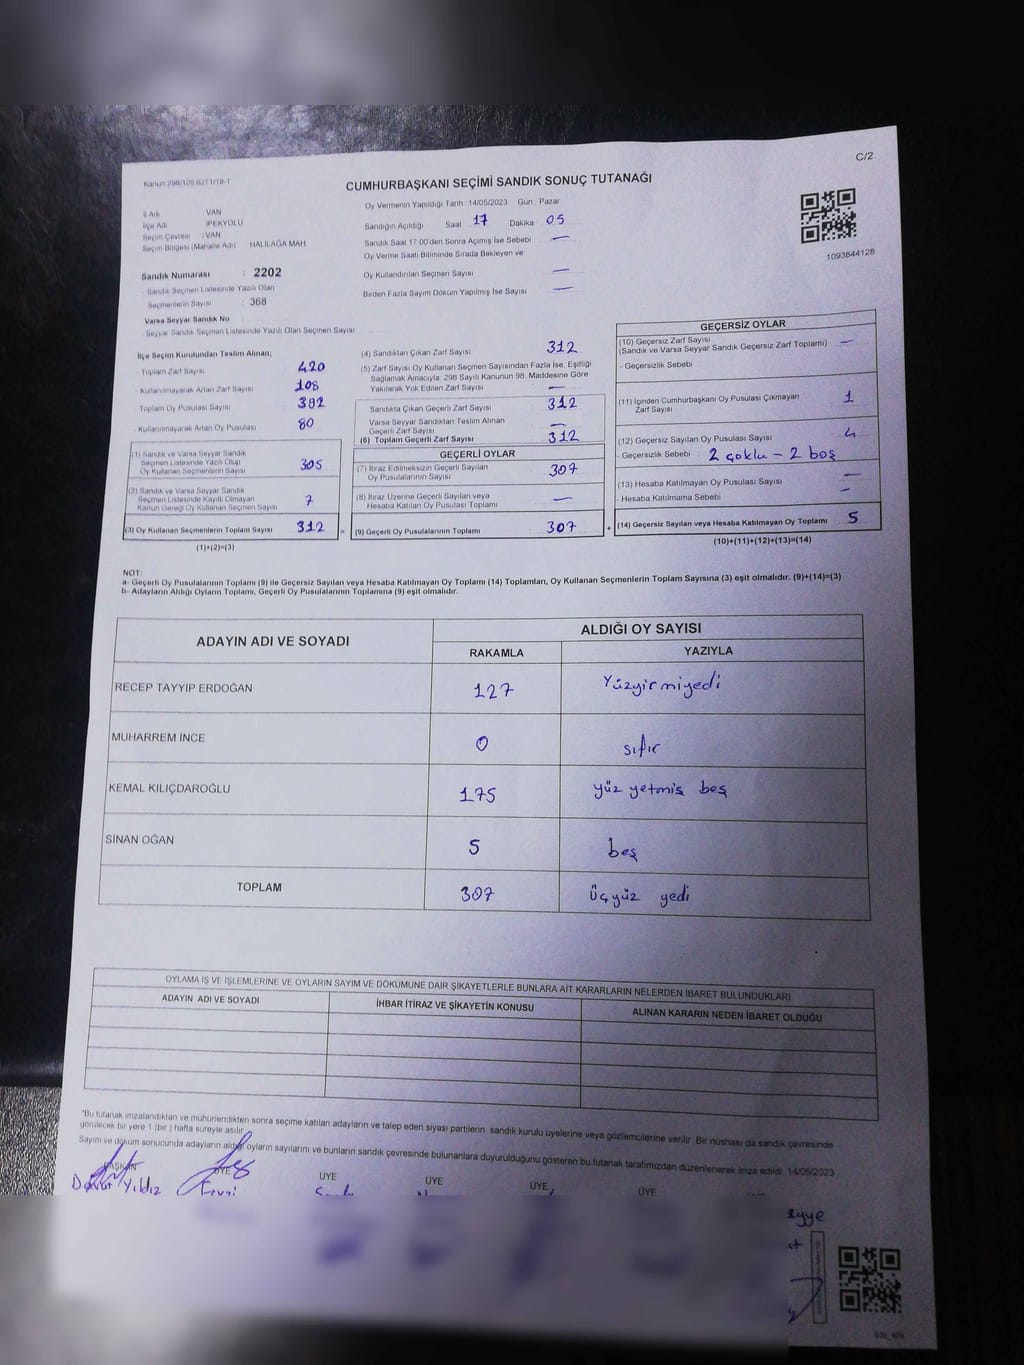 C/2
Kanun 298/105 6271/18-1
CUMHURBAŞKANI SEÇİMİ SANDIK SONUÇ TUTANAĞI
Oy Vermenin Yapıldığı Tarih : 14/05/2023 Gün : Pazar
İl Adı VAN
İlçe Adı İPEKYOLU
Seçim Çevresi : VAN
Seçim Bölgesi (Mahalle Adı) HALİLAĞA MAH.
Sandık Numarası : 2202
Sandık Seçmen Listesinde Yazılı Olan
Seçmenlerin Sayısı : 368
Varsa Seyyar Sandık No
Seyyar Sandık Seçmen Listesinde Yazılı Olan Seçmen Sayısı
Sandığın Açıldığı Saat 17 Dakika 05
Sandık Saat 17 00'den Sonra Açılmış İse Sebebi —
Oy Verme Saati Bitiminde Sırada Bekleyen ve
Oy Kullandırılan Seçmen Sayısı —
Birden Fazla Sayım Döküm Yapılmış İse Sayısı —
1093844128
İlçe Seçim Kurulundan Teslim Alınan;
Toplam Zarf Sayısı 420
Kullanılmayarak Artan Zarf Sayısı 108
Toplam Oy Pusulası Sayısı 392
Kullanılmayarak Artan Oy Pusulası 80
(1) Sandık ve Varsa Seyyar Sandık
Seçmen Listesinde Yazılı Olup
Oy Kullanan Seçmenlerin Sayısı 305
(2) Sandık ve Varsa Seyyar Sandık
Seçmen Listesinde Kayıtlı Olmayan
Kanun Gereği Oy Kullanan Seçmen Sayısı 7
(3) Oy Kullanan Seçmenlerin Toplam Sayısı 312
(1)+(2)=(3)
(4) Sandıktan Çıkan Zarf Sayısı 312
(5) Zarf Sayısı Oy Kullanan Seçmen Sayısından Fazla İse, Eşitliği
Sağlamak Amacıyla, 298 Sayılı Kanunun 98. Maddesine Göre
Yakılarak Yok Edilen Zarf Sayısı —
Sandıkta Çıkan Geçerli Zarf Sayısı 312
Varsa Seyyar Sandıktan Teslim Alınan
Geçerli Zarf Sayısı —
(6) Toplam Geçerli Zarf Sayısı 312
GEÇERLİ OYLAR
(7) İtiraz Edilmeksizin Geçerli Sayılan
Oy Pusulalarının Sayısı 307
(8) İtiraz Üzerine Geçerli Sayılan veya
Hesaba Katılan Oy Pusulası Toplamı —
= (9) Geçerli Oy Pusulalarının Toplamı 307
GEÇERSİZ OYLAR
(10) Geçersiz Zarf Sayısı —
(Sandık ve Varsa Seyyar Sandık Geçersiz Zarf Toplamı)
- Geçersizlik Sebebi
(11) İçinden Cumhurbaşkanı Oy Pusulası Çıkmayan
Zarf Sayısı 1
(12) Geçersiz Sayılan Oy Pusulası Sayısı 4
- Geçersizlik Sebebi : 2 çoklu - 2 boş
(13) Hesaba Katılmayan Oy Pusulası Sayısı —
- Hesaba Katılmama Sebebi —
+ (14) Geçersiz Sayılan veya Hesaba Katılmayan Oy Toplamı 5
(10)+(11)+(12)+(13)=(14)
NOT:
a- Geçerli Oy Pusulalarının Toplamı (9) ile Geçersiz Sayılan veya Hesaba Katılmayan Oy Toplamı (14) Toplamları, Oy Kullanan Seçmenlerin Toplam Sayısına (3) eşit olmalıdır. (9)+(14)=(3)
b- Adayların Aldığı Oyların Toplamı, Geçerli Oy Pusulalarının Toplamına (9) eşit olmalıdır.
ADAYIN ADI VE SOYADI ALDIĞI OY SAYISI
RAKAMLA YAZIYLA
RECEP TAYYİP ERDOĞAN 127 Yüzyirmiyedi
MUHARREM İNCE 0 sıfır
KEMAL KILIÇDAROĞLU 175 yüz yetmiş beş
SİNAN OĞAN 5 beş
TOPLAM 307 üçyüz yedi
OYLAMA İŞ VE İŞLEMLERİNE VE OYLARIN SAYIM VE DÖKÜMÜNE DAİR ŞİKAYETLERLE BUNLARA AİT KARARLARIN NELERDEN İBARET BULUNDUKLARI
ADAYIN ADI VE SOYADI İHBAR İTİRAZ VE ŞİKAYETİN KONUSU ALINAN KARARIN NEDEN İBARET OLDUĞU
*Bu tutanak imzalandıktan ve mühürlendikten sonra seçime katılan adayların ve talep eden siyasi partilerin sandık kurulu üyelerine veya gözlemcilerine verilir. Bir nüshası da sandık çevresinde
görülecek bir yere 1 (bir ) hafta süreyle asılır.
Sayım ve döküm sonucunda adayların aldığı oyların sayılarını ve bunların sandık çevresinde bulunanlara duyurulduğunu gösteren bu tutanak tarafımızdan düzenlenerek imza edildi. 14/05/2023
BAŞKAN ÜYE ÜYE ÜYE ÜYE ÜYE
Davut Yıldız